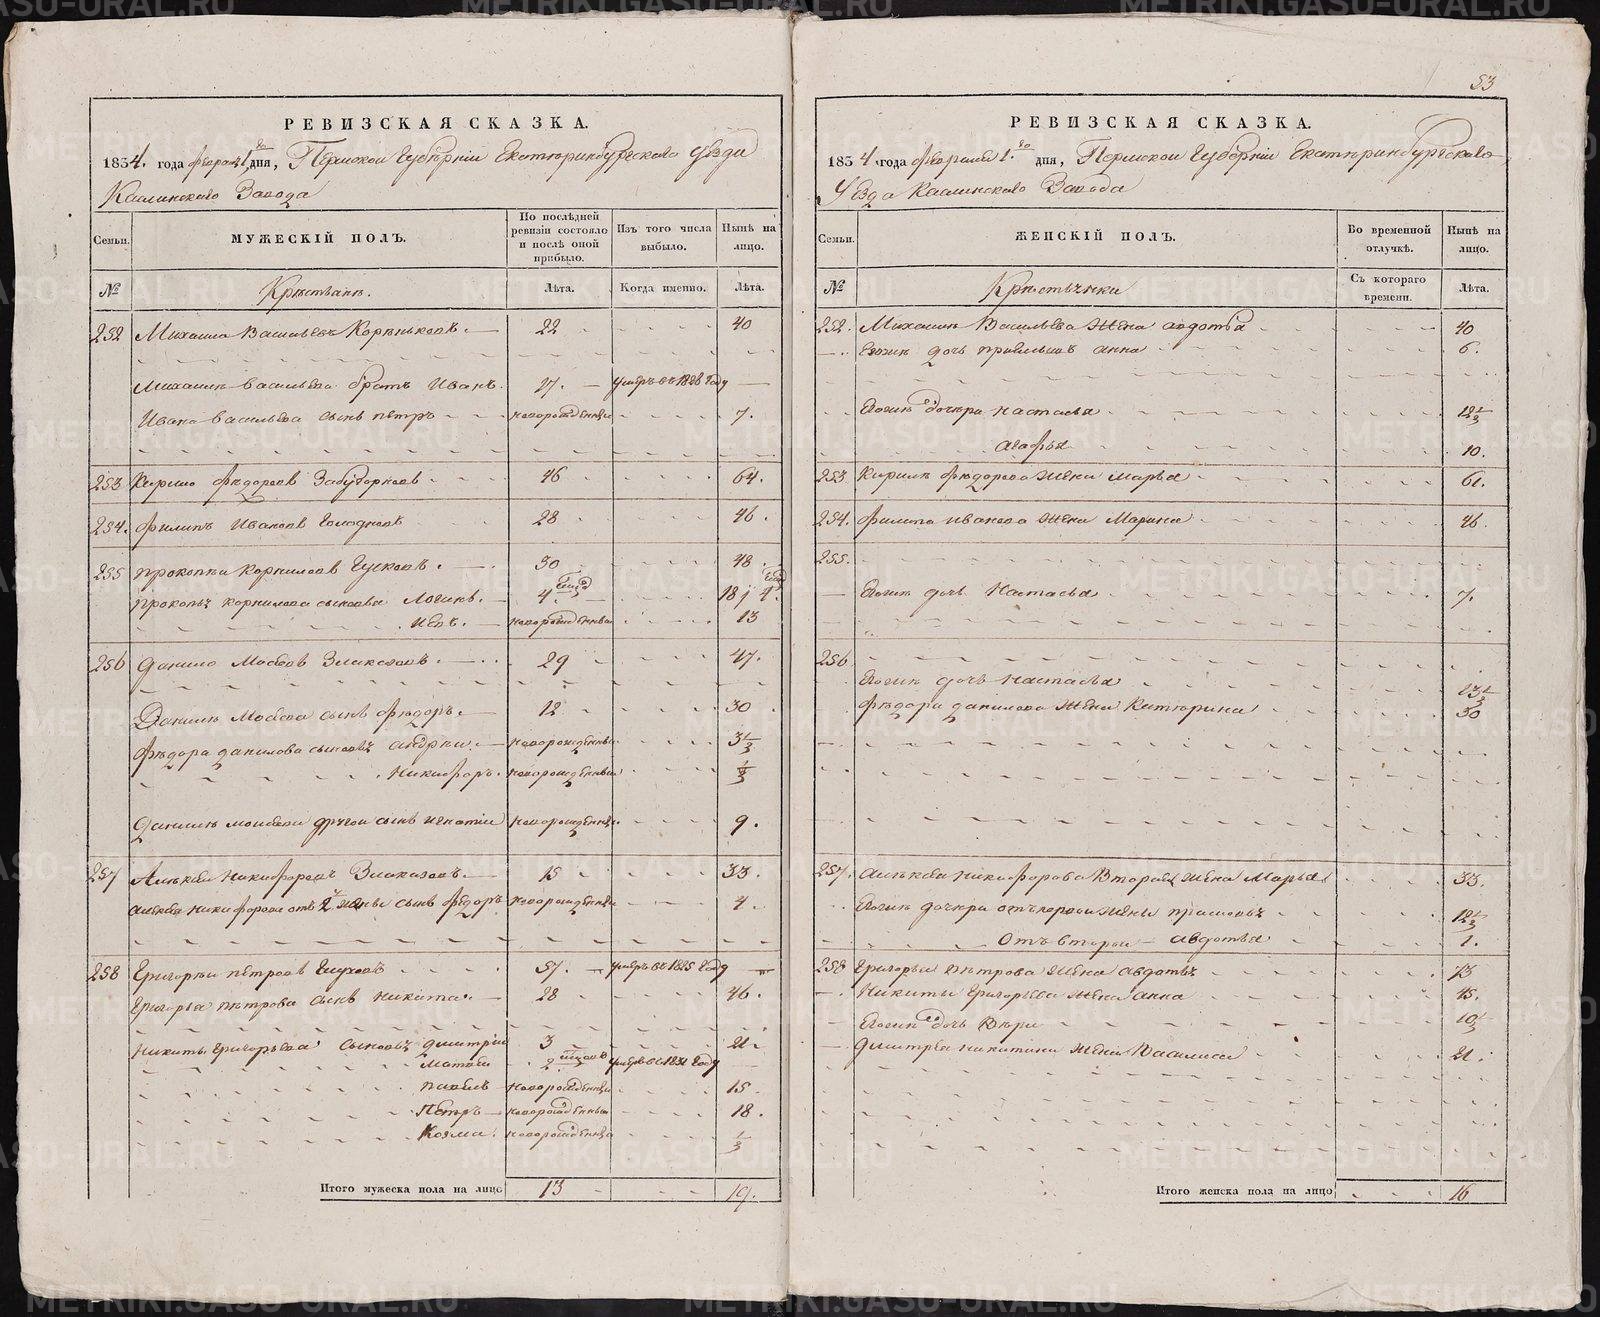 53
РЕВИЗСКАЯ СКАЗКА.
1834. года февраля 1го дня, Пермской Губерніи Екатеринбургскаго уѣзда
Каслинскаго Завода
Семьи. МУЖЕСКІЙ ПОЛЪ. По послѣдней ревизіи состояло и послѣ оной прибыло. Изъ того числа выбыло. Нынѣ на лицо.
№ Крестьяне. Лѣта. Когда именно. Лѣта.
252 Михаило Васильевъ 22 40
Михаила Васильева братъ Иванъ. 27. умеръ въ 1828 году
Ивана Васильева сынъ петръ новорожденный 7.
253 Кирило Федоровъ 46 64.
254. Филипъ Ивановъ 28 46.
255 прокопеи Корниловъ Гусковъ. 30 48.
прокопья корнилова сыновья Логинъ. 4. 18
новорожденный 13
256 данило Мосеевъ 29 47.
Данила Мосеева сынъ Федоръ. 12 30
Федора данилова сыновья андреи новорожденный 3 1/3
Никифоръ. новорожденный 1/3
Данила моисеева другой сынъ игнатіи новорожденный 9.
257 Алексеи Никифоровъ 15 33.
алексея никифорова отъ 2й жены сынъ Федоръ новорожденный 4.
258 Григореи петровъ Глуховъ 57. умеръ въ 1825 году
Григорья петрова сынъ Никита. 28 46.
Никиты Григорьева сыновья дмитреи 3 21
Матвеи 2 умеръ въ 1831 году
павелъ новорожденный 15
Петръ новорожденный 18.
Козма. новорожденный 1/3
Итого мужеска пола на лицо 13 19.
РЕВИЗСКАЯ СКАЗКА.
1834 года февраля 1.го дня, Пермской Губерніи Екатеринбургскаго
Уѣзда Каслинскаго Завода
Семьи. ЖЕНСКІЙ ПОЛЪ. Во временной отлучкѣ. Нынѣ на лицо.
№ Крестьянки Съ котораго времени. Лѣта.
252. Михаила Васильева жена авдотья 40
дочь анна 6.
дочери настасья 12 1/3
агафья 10.
253 Кирила Федорова жена марья 61.
254. Филипа иванова жена Марина 46.
255.
дочь Настасья 7.
256
дочь настасья 13 1/3
Федора данилова жена Катерина 30
257. алексея никифорова Вторая жена Марья 33.
дочери отъ первой жены 12 1/3
Отъ второи авдотья 1.
258 Григорья петрова жена авдотья 73
Никиты Григорьева жена анна 45.
дочь 10 1/3
дмитрея никитина жена Василиса 21.
Итого женска пола на лицо 16
METRIKI.GASO-URAL.RU